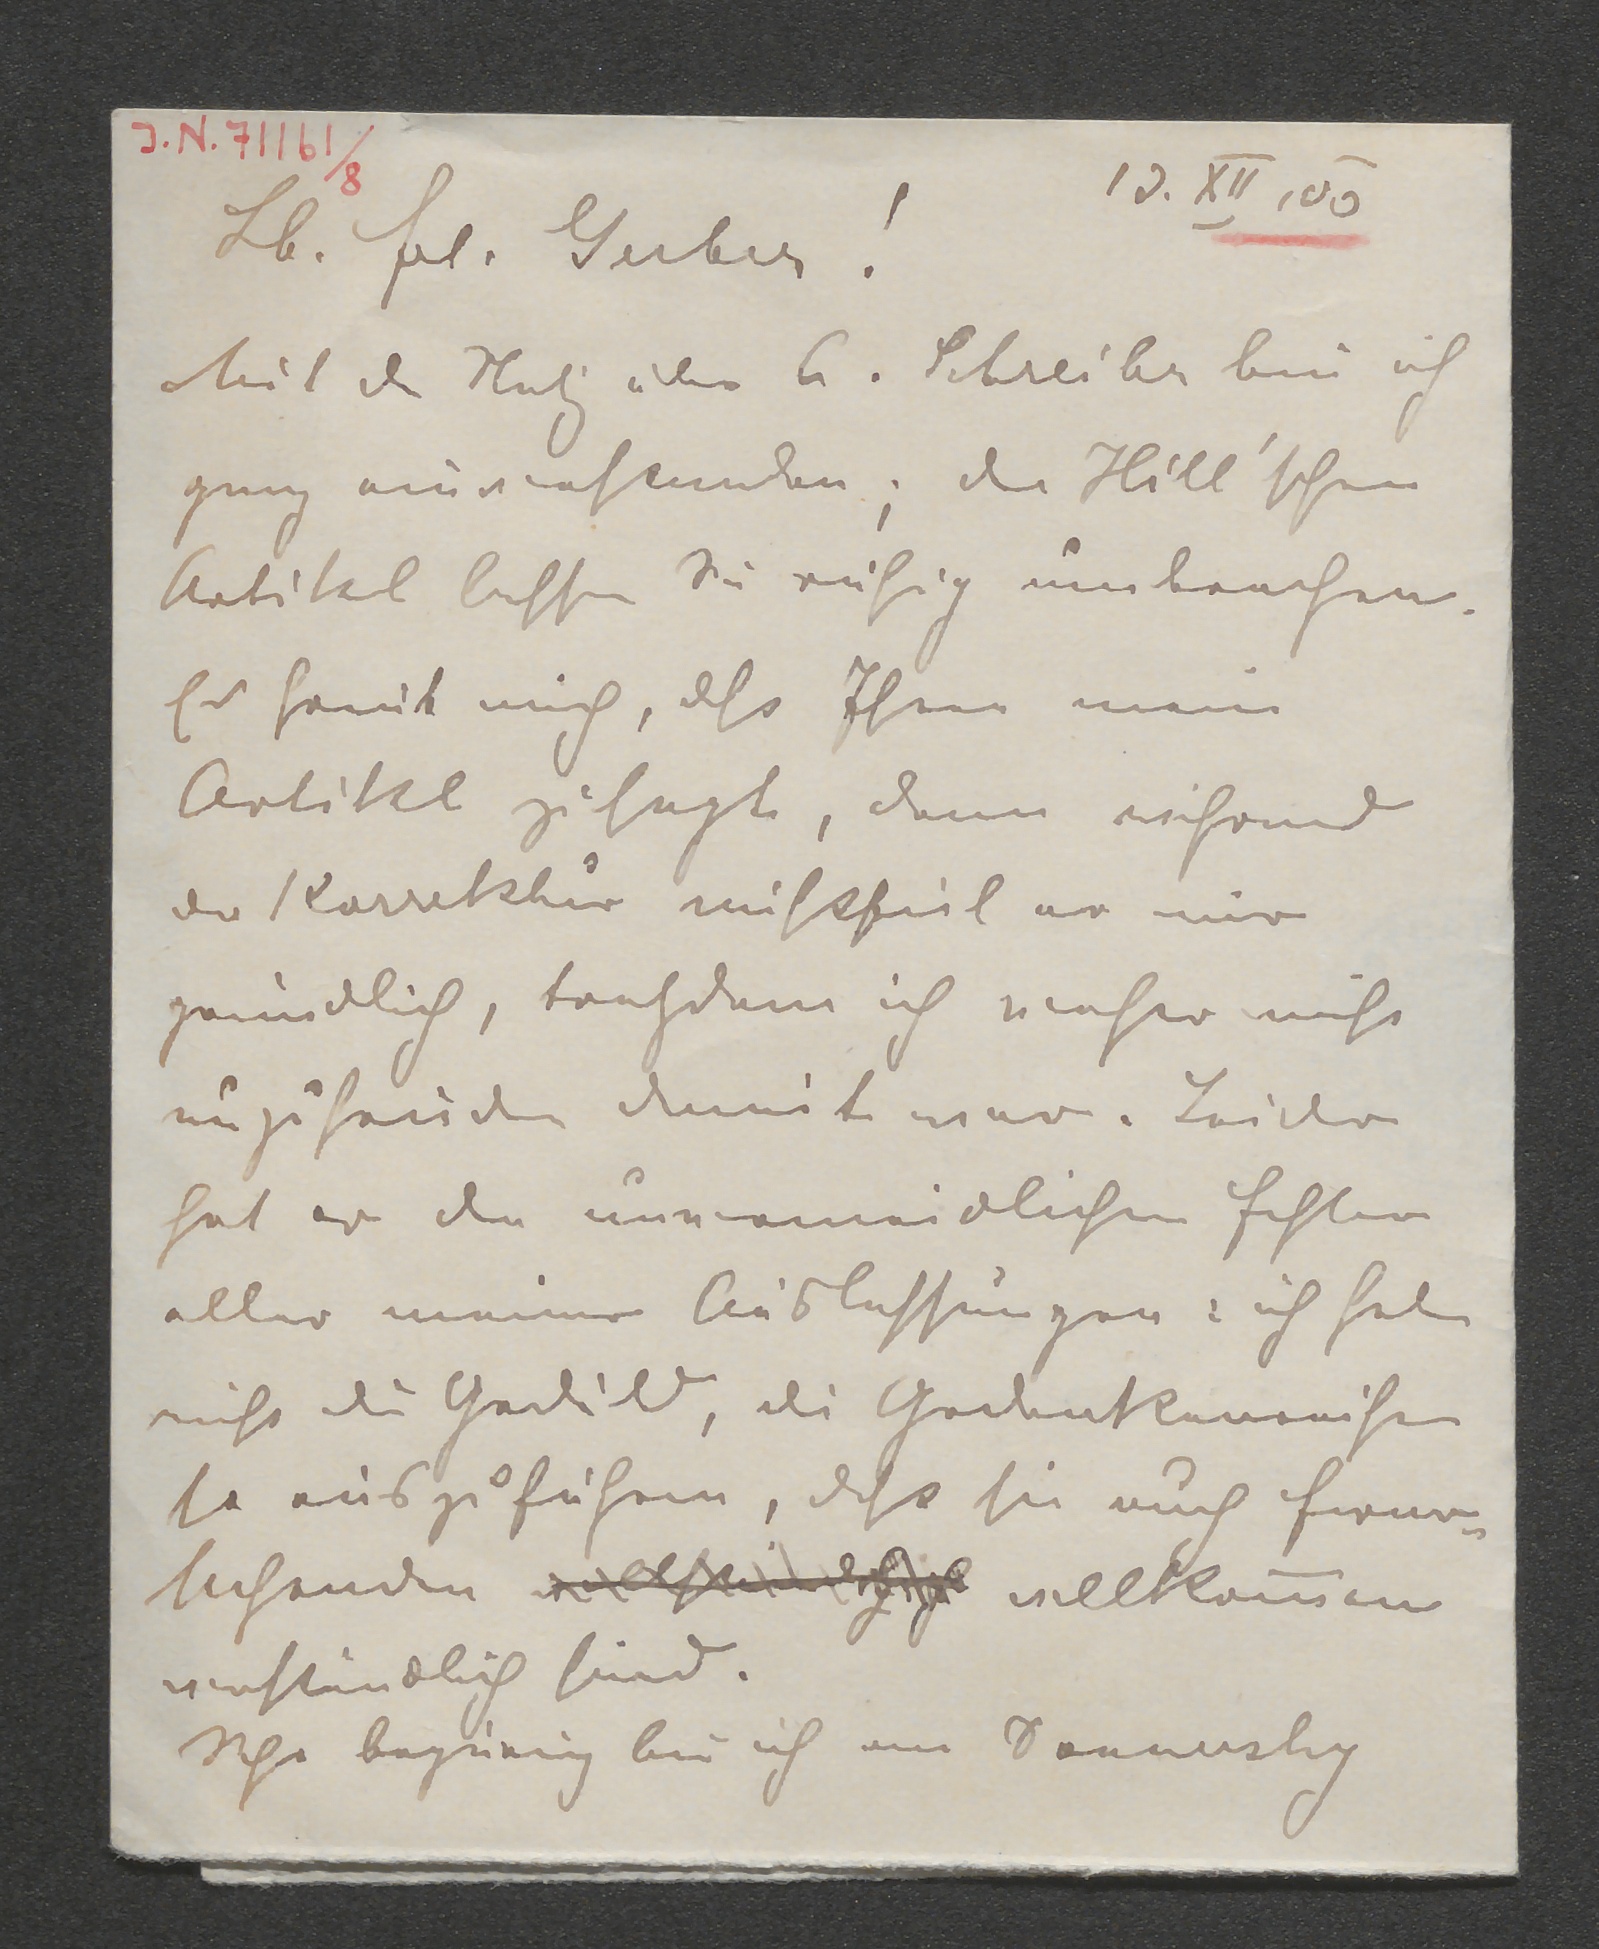 J.N. 71161/8
13. XII 00
Lb. Frl. Gerber!
Mit der Notiz über A. Schreiber bin ich
ganz einverstanden; den Hill'schen
Artikel lassen Sie ruhig umbrechen.
Es freut mich, dass Ihnen mein
Artikel zusagt, denn während
der Korrektur missfiel er mir
gründlich, trotzdem ich vorher nicht
unzufrieden damit war. Leider
hat er den unvermeidlichen Fehler
aller meiner Auslassungen: ich habe
nicht die Geduld, die Gedankenreihen
so auszuführen, dass sie auch Ferner=
stehenden vollkom̅en
verständlich sind.
Sehr begierig bin ich am Donnerstag